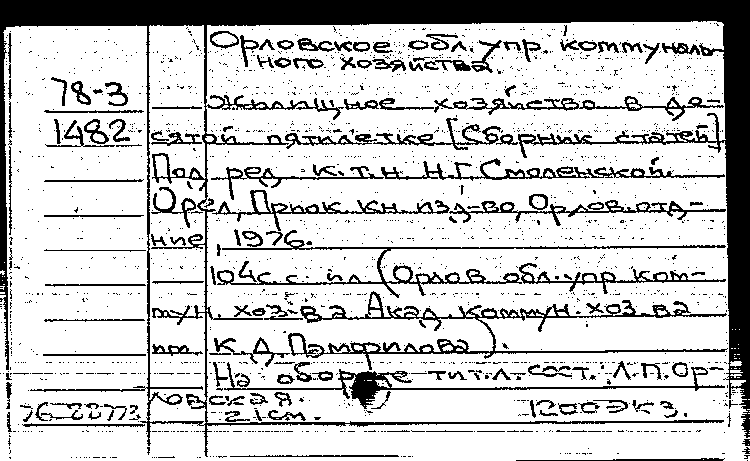 Орловское обл. упр. коммуналь-
ного хозяйства.
78-3
Жылищное хозяйство в де-
1482
сятой пятилетке [Сборник статей]
Под ред. к.т.н. Н.Г. Смоленской.
Орел, Приок. кн. изд-во, Орлов. отд-
ние, 1976.
104 с. с ил (Орлов обл. упр ком-
мун. хоз-ва Акад. коммун. хоз. ва
им. К.Д. Памфилова).
На обороте тит. л. сост.: Л.П. Ор-
ловская.
76-22773
21 см.
1200 экз.